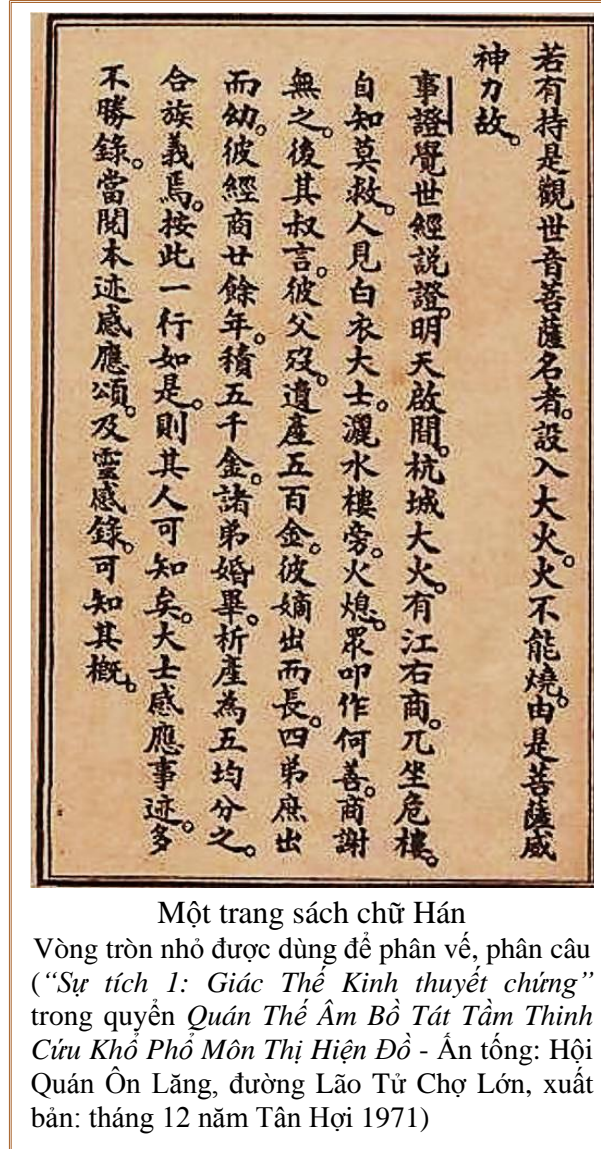 若有持是觀世音菩薩名者。設入大火。火不能燒。由是菩薩威
神力故。
事證覺世經説證。明天啟間。杭城大火。有江右商。兀坐危樓。
自知莫救。人見白衣大士。灑水樓旁。火熄。眾叩作何善。商謝
無之。後其叔言。彼父歿。遺產五百金。彼嫡出而長。四弟庶出
而幼。彼經商廿餘年。積五千金。諸弟婚畢。析產為五均分之。
合族義焉。按此一行如是。則其人可知矣。大士感應事迹。多
不勝錄。當閱本迹感應頌。及靈感錄。可知其概。
Một trang sách chữ Hán
Vòng tròn nhỏ được dùng để phân vế, phân câu
(“Sự tích 1: Giác Thế Kinh thuyết chứng”
trong quyển Quán Thế Âm Bồ Tát Tầm Thinh
Cứu Khổ Phổ Môn Thị Hiện Đồ - Ấn tống: Hội
Quán Ôn Lăng, đường Lão Tử Chợ Lớn, xuất
bản: tháng 12 năm Tân Hợi 1971)